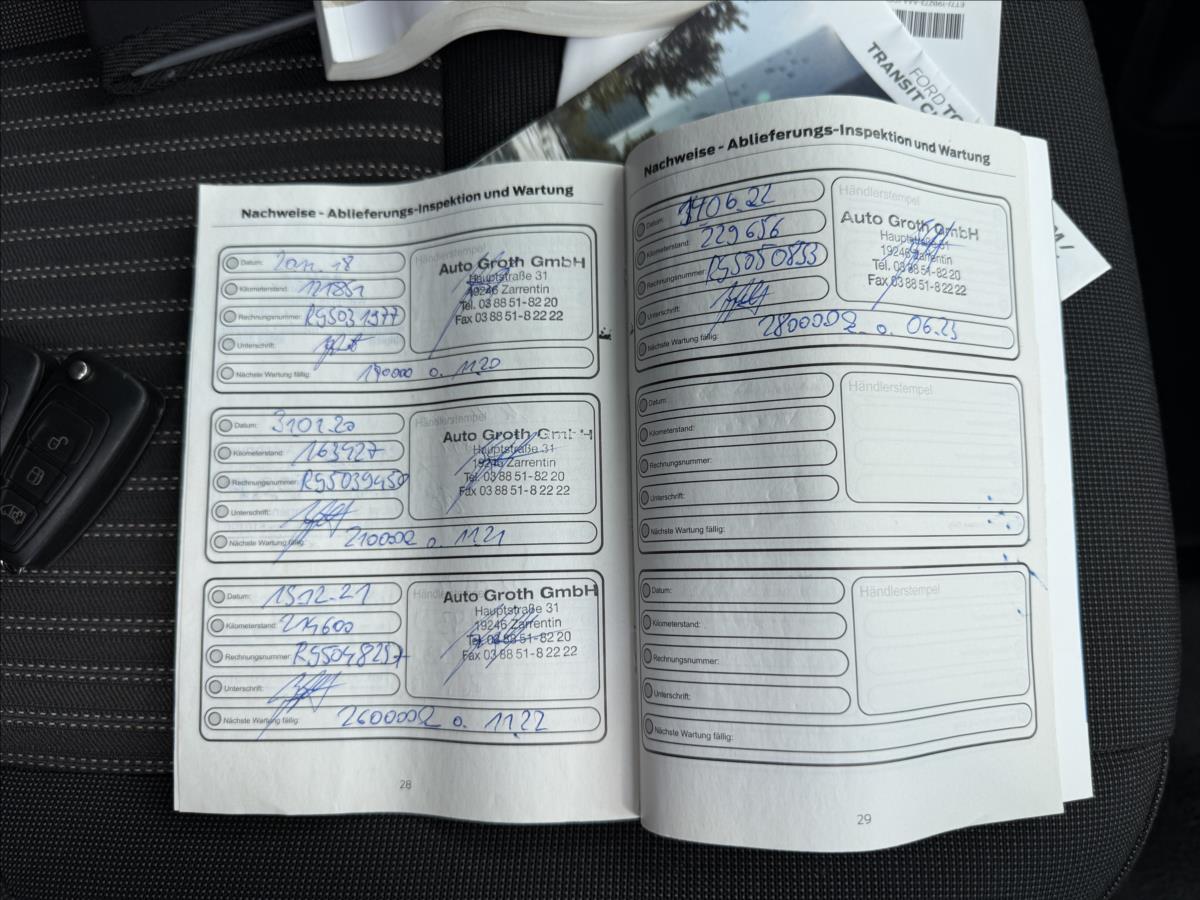 FORD TO
TRANSIT C
Nachweise - Ablieferungs-Inspektion und Wartung
Datum:
Kilometerstand:
Rechnungsnummer: RG5031977
Unterschrift:
Nächste Wartung fällig: 190000 o. 11.20
Händlerstempel
Auto Groth GmbH
Hauptstraße 31
19246 Zarrentin
Tel. 03 88 51-82 20
Fax 03 88 51-8 22 22
Datum: 3101.20
Kilometerstand: 163427
Rechnungsnummer: RG5039450
Unterschrift:
Nächste Wartung fällig: 210000 o. 11.21
Händlerstempel
Auto Groth GmbH
Hauptstraße 31
19246 Zarrentin
Tel. 03 88 51-82 20
Fax 03 88 51-8 22 22
Datum: 1512.21
Kilometerstand: 214600
Rechnungsnummer: RG5048257
Unterschrift:
Nächste Wartung fällig: 260000 o. 11.22
Auto Groth GmbH
Hauptstraße 31
19246 Zarrentin
Tel. 03 88 51-82 20
Fax 03 88 51-8 22 22
28
Nachweise - Ablieferungs-Inspektion und Wartung
Datum: 06.22
Kilometerstand: 229656
Rechnungsnummer: RG5050853
Unterschrift:
Nächste Wartung fällig: 280000 o. 06.23
Händlerstempel
Auto Groth GmbH
Hauptstraße 31
19246 Zarrentin
Tel. 03 88 51-82 20
Fax 03 88 51-8 22 22
Datum:
Kilometerstand:
Rechnungsnummer:
Unterschrift:
Nächste Wartung fällig:
Händlerstempel
Datum:
Kilometerstand:
Rechnungsnummer:
Unterschrift:
Nächste Wartung fällig:
Händlerstempel
29